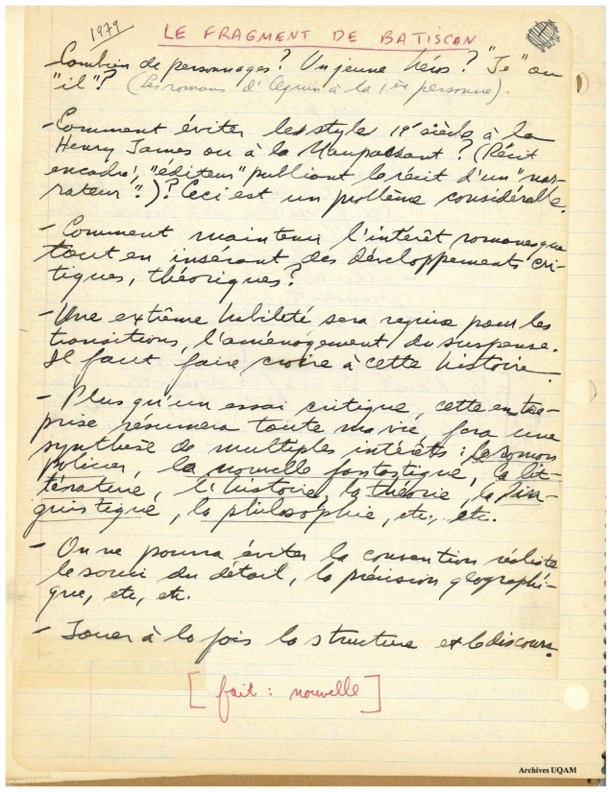 1979
LE FRAGMENT DE BATISCAN
Combien de personnages? Un jeune héros? "Je" ou
"il"? (Les romans d'Aquin à la 1ère personne).
- Comment éviter le style 19e siècle à la
Henry James ou à la Maupassant? (Récit
encadré, "éditeur" publiant le récit d'un "nar-
rateur".)? Ceci est un problème considérable.
- Comment maintenir l'intérêt romanesque
tout en insérant des développements cri-
tiques, théoriques?
- Une extrême habileté sera requise pour les
transitions, l'aménagement du suspense.
Il faut faire croire à cette histoire.
- Plus qu'un essai critique, cette entre-
prise résumera toute ma vie, fera une
synthèse de multiples intérêts: le roman
policier, la nouvelle fantastique, la lit-
térature, l'histoire, la théorie, la lin-
guistique, la philosophie, etc., etc.
- On ne pourra éviter la convention réaliste
le souci du détail, la précision géographi-
que, etc, etc.
- Jouer à la fois la structure et le discours.
[fait: nouvelle]
Archives UQAM